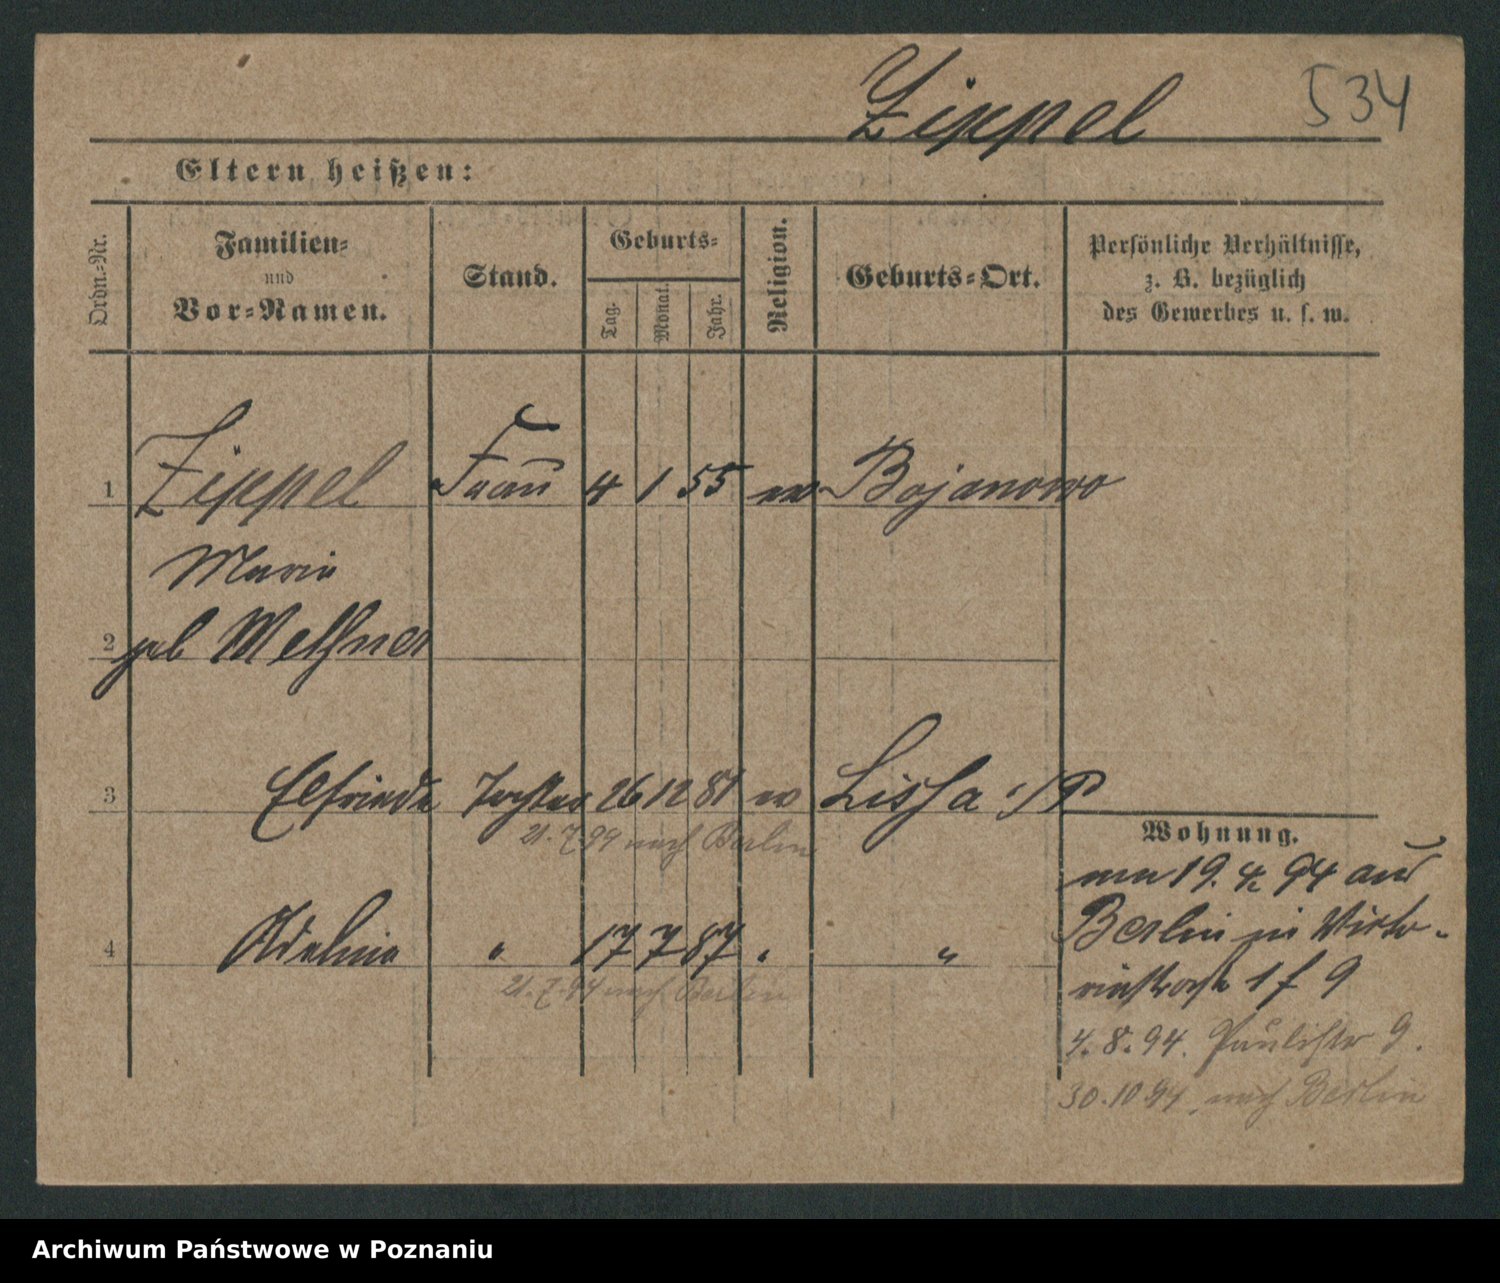 Zippel 534
Eltern heißen:
Ordn.-Nr.
Familien-
und
Vor-Namen.
Stand.
Geburts-
Tag.
Monat.
Jahr.
Religion.
Geburts-Ort.
Persönliche Verhältnisse,
z. B. bezüglich
des Gewerbes u. s. w.
1 Zippel Frau 4 1 55 ev Bojanowo
Marie
2 geb
3 Elfriede Tochter 26 12 81 ev Lissa i/P
21.7.94 nach Berlin
Wohnung.
von 19. 4. 94 aus
4 " 17 7 87 " "
Berlin in Victo-
21.7.94 nach Berlin
riastraße 9
4.8.94. Paulistr 9.
30.10.94 nach Berlin
Archiwum Państwowe w Poznaniu